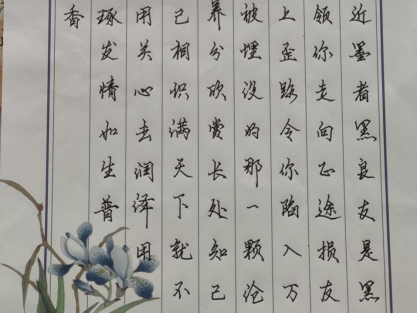 近墨者黑良友是黑
领你走向正途损友
上歪路令你陷入万
被埋没的那一颗沧
养分欣赏长处知己
己相识满天下就不
用关心去润泽用
琢友情如生普
香